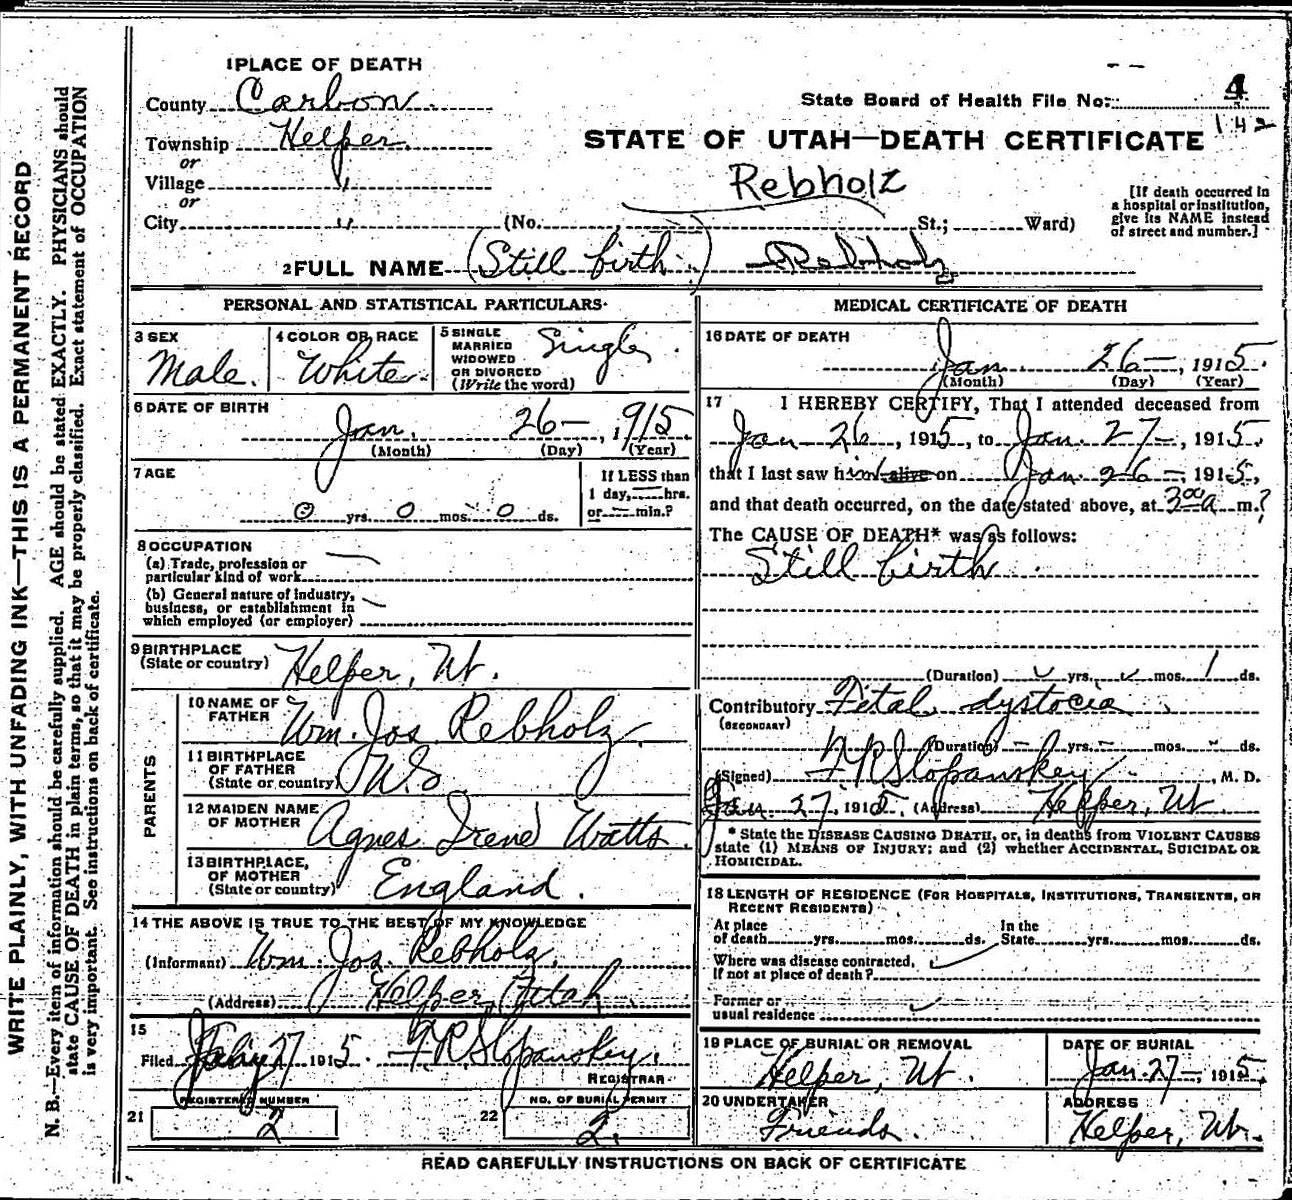 WRITE PLAINLY, WITH UNFADING INK—THIS IS A PERMANENT RECORD
N. B.—Every item of information should be carefully supplied. AGE should be stated EXACTLY. PHYSICIANS should
state CAUSE OF DEATH in plain terms, so that it may be properly classified. Exact statement of OCCUPATION
is very important. See instructions on back of certificate.
1 PLACE OF DEATH
County Carbon
State Board of Health File No: 4
142
Township Helper
STATE OF UTAH—DEATH CERTIFICATE
or
Village "
Rebholz
or
City " (No. St.; Ward)
[If death occurred in
a hospital or institution,
give its NAME instead
of street and number.]
2 FULL NAME (Still birth) Rebholz
PERSONAL AND STATISTICAL PARTICULARS
3 SEX
Male.
4 COLOR OR RACE
White
5 SINGLE
MARRIED
WIDOWED
OR DIVORCED
(Write the word)
Single
6 DATE OF BIRTH
Jan. 26—, 1915.
(Month) (Day) (Year)
7 AGE
0 yrs. 0 mos. 0 ds.
If LESS than
1 day, — hrs.
or — min.?
8 OCCUPATION
(a) Trade, profession or
particular kind of work —
(b) General nature of industry,
business, or establishment in
which employed (or employer)
9 BIRTHPLACE
(State or country) Helper, Ut.
PARENTS
10 NAME OF
FATHER Wm. Jos Rebholz
11 BIRTHPLACE
OF FATHER
(State or country) U.S
12 MAIDEN NAME
OF MOTHER Agnes Irene Watts.
13 BIRTHPLACE,
OF MOTHER
(State or country) England.
14 THE ABOVE IS TRUE TO THE BEST OF MY KNOWLEDGE
(Informant) Wm. Jos. Rebholz.
(Address) Helper, Utah
15
Filed 27 1915. F R Slopanskey.
REGISTRAR
REGISTERED NUMBER
21 2
NO. OF BURIAL PERMIT
22 2.
MEDICAL CERTIFICATE OF DEATH
16 DATE OF DEATH
Jan. 26—, 1915.
(Month) (Day) (Year)
17 I HEREBY CERTIFY, That I attended deceased from
Jan 26, 1915, to Jan. 27—, 1915,
that I last saw him alive on Jan. 26—, 1915,
and that death occurred, on the date stated above, at 3 00 a m.?
The CAUSE OF DEATH* was as follows:
Still birth.
(Duration) yrs. mos. 1 ds.
Contributory Fetal dystocia
(SECONDARY)
(Duration) — yrs. — mos. - ds.
(Signed) F R Slopanskey, M. D.
Jan. 27, 1915. (Address) Helper, Ut.
* State the DISEASE CAUSING DEATH, or, in deaths from VIOLENT CAUSES
state (1) MEANS OF INJURY; and (2) whether ACCIDENTAL, SUICIDAL OR
HOMICIDAL.
18 LENGTH OF RESIDENCE (FOR HOSPITALS, INSTITUTIONS, TRANSIENTS, OR
RECENT RESIDENTS)
At place
of death yrs. mos. ds. In the
State yrs. mos. ds.
Where was disease contracted,
If not at place of death?
Former or
usual residence
19 PLACE OF BURIAL OR REMOVAL
Helper, Ut.
DATE OF BURIAL
Jan. 27—, 1915.
20 UNDERTAKER
Friends.
ADDRESS
Helper, Ut.
READ CAREFULLY INSTRUCTIONS ON BACK OF CERTIFICATE